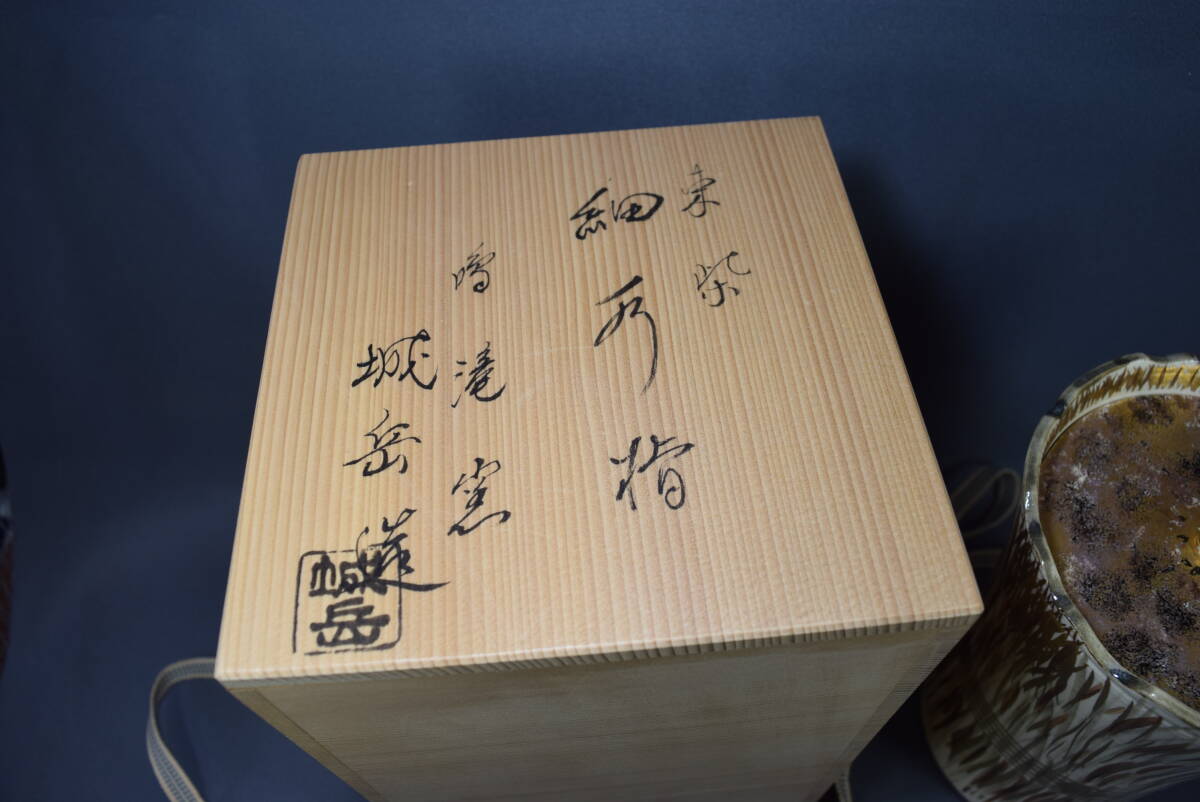 束柴
細水指
鳴滝窯
城岳造
城岳